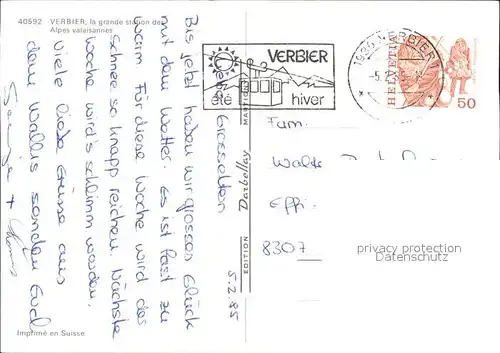 40592 VERBIER, la grande station des
Alpes valaisannes
5.2.85
Liebe Grosseltern
Bis jetzt haben wir grosses Glück
mit dem Wetter. Es ist fast zu
warm. Für diese Woche wird der
Schnee so knapp reichen. Nächste
Woche wird's schlimm werden.
Viele liebe Grüsse aus
dem Wallis senden Euch
+ Thomas
Imprimé en Suisse
EDITION Darbellay MARTIGNY
VERBIER
été hiver
1936 VERBIER 1
HELVETIA
50
Fam.
Effr
8307
privacy protection
Datenschutz